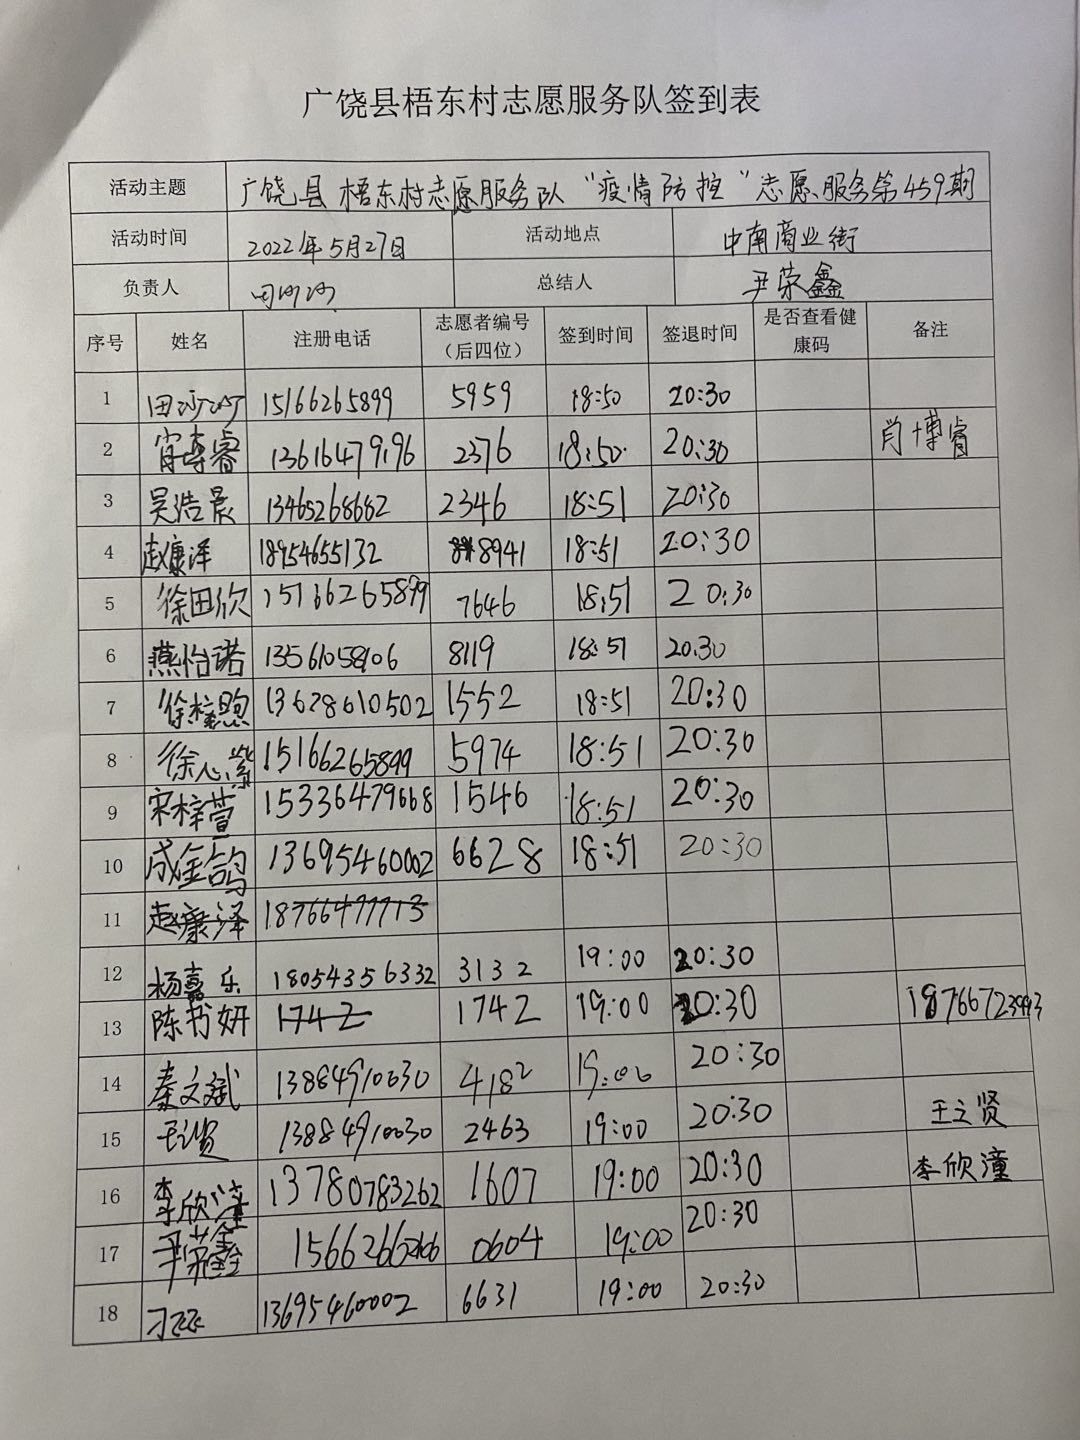 广饶县梧东村志愿服务队签到表
活动主题 广饶县梧东村志愿服务队“疫情防控”志愿服务第459期
活动时间 2022年5月27日 活动地点 中南商业街
负责人 田沙沙 总结人 尹荣鑫
序号 姓名 注册电话 志愿者编号（后四位） 签到时间 签退时间 是否查看健康码 备注
1 田沙沙 15166265899 5959 18:50 20:30
2 肖博睿 13616479196 2376 18:50 20:30 肖博睿
3 吴浩晨 13465268682 2346 18:51 20:30
4 赵康泽 18954655132 8941 18:51 20:30
5 徐田欣 15166265899 7646 18:51 20:30
6 燕怡诺 13561058106 8119 18:51 20:30
7 徐梓煦 13678610502 1552 18:51 20:30
8 徐心紫 15166265899 5974 18:51 20:30
9 宋梓萱 15336479668 1546 18:51 20:30
10 成金鸽 13695460002 6628 18:51 20:30
11 赵康泽 18766477713
12 杨嘉乐 18054356332 3132 19:00 20:30
13 陈书妍 1742 1742 19:00 20:30 18766723993
14 秦文斌 13884910030 4182 19:00 20:30
15 王之贤 13884910030 2463 19:00 20:30 王之贤
16 李欣潼 13780783262 1607 19:00 20:30 李欣潼
17 尹荣鑫 0604 19:00 20:30
18 刁 13695460002 6631 19:00 20:30